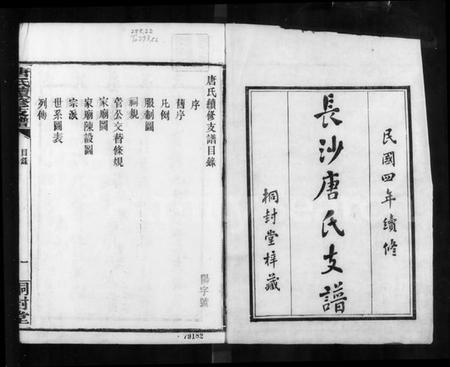 民國四年續修
長沙唐氏支譜
桐封堂梓藏
唐氏續修支譜目錄
序
舊序
凡例
服制圖
祠規
管公文替條規
家廟圖
家廟陳設圖
宗派
世系圖表
列傳
陽字號
79182
唐氏續修支譜
目錄
一
桐封堂